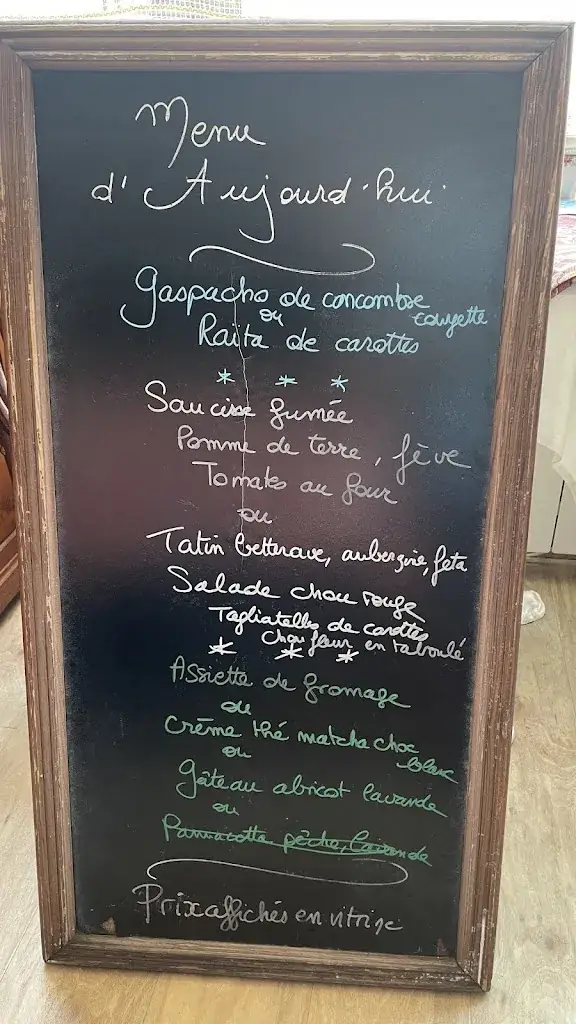 Menu
d'Aujourd'hui
Gaspacho de concombre
ou courgette
Raïta de carottes
* * *
Saucisse fumée
Pomme de terre, fève
Tomates au four
ou
Tatin betterave, aubergine, feta
Salade chou rouge
Tagliatelles de carottes
Chou fleur en taboulé
* * *
Assiette de fromage
ou
Crème thé matcha choc
ou blanc
Gâteau abricot lavande
ou
Pannacotta pêche, lavande
Prix affichés en vitrine